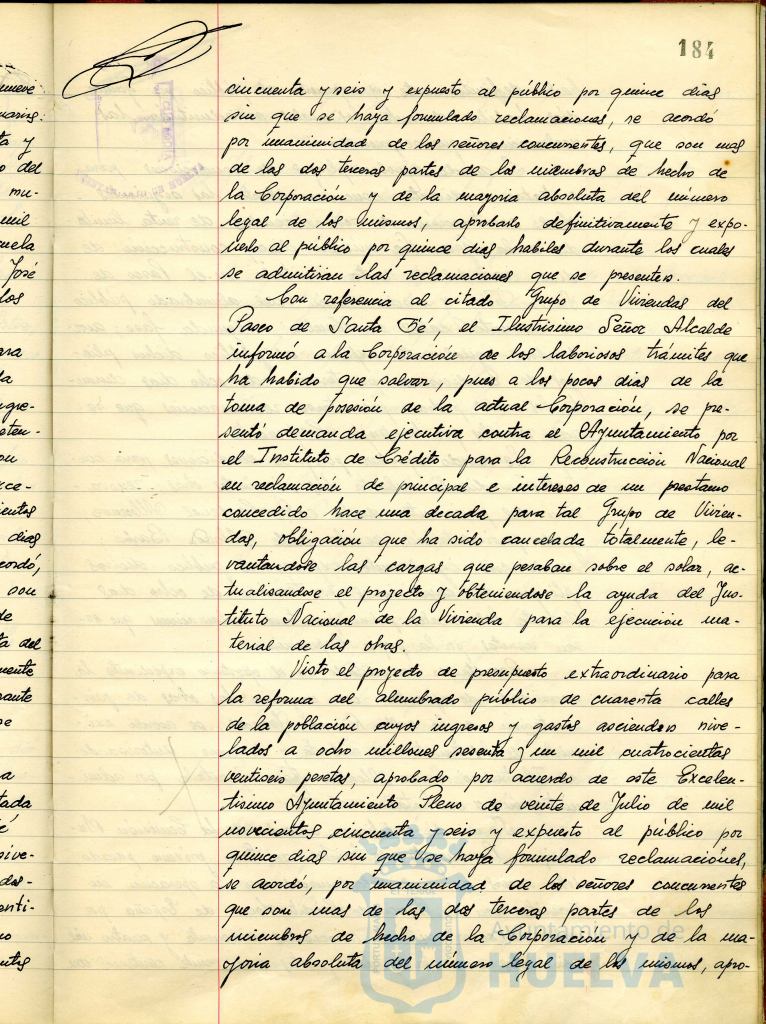 184
cincuenta y seis y expuesto al público por quince días
sin que se haya formulado reclamaciones, se acordó
por unanimidad de los señores concurrentes, que son mas
de las dos terceras partes de los miembros de hecho de
la Corporación y de la mayoria absoluta del número
legal de los mismos, aprobarlo definitivamente y expo-
nerlo al público por quince dias habiles durante los cuales
se admitiran las reclamaciones que se presenten.
Con referencia al citado Grupo de Viviendas del
Paseo de Santa Fé, el Ilustrisimo Señor Alcalde
informó a la Corporación de los laboriosos trámites que
ha habido que salvar, pues a los pocos dias de la
toma de posesión de la actual Corporación, se pre-
sentó demanda ejecutiva contra el Ayuntamiento por
el Instituto de Crédito para la Reconstrucción Nacional
en reclamación de principal e intereses de un prestamo
concedido hace una decada para tal Grupo de Vivien-
das, obligación que ha sido cancelada totalmente, le-
vantandose las cargas que pesaban sobre el solar, ac-
tualisandose el proyecto y obteniendose la ayuda del Ins-
tituto Nacional de la Vivienda para la ejecución ma-
terial de las obras.
Visto el proyecto de presupuesto extraordinario para
la reforma del alumbrado público de cuarenta calles
de la población cuyos ingresos y gastos ascienden nive-
lados a ocho millones sesenta y un mil cuatrocientas
ventiseis pesetas, aprobado por acuerdo de este Excelen-
tisimo Ayuntamiento Pleno de veinte de Julio de mil
novecientos cincuenta y seis y expuesto al público por
quince dias sin que se haya formulado reclamaciones,
se acordó, por unanimidad de los señores concurrentes
que son mas de las dos terceras partes de los
miembros de hecho de la Corporación y de la ma-
yoria absoluta del número legal de los mismos, apro-
Ayuntamiento de
HUELVA